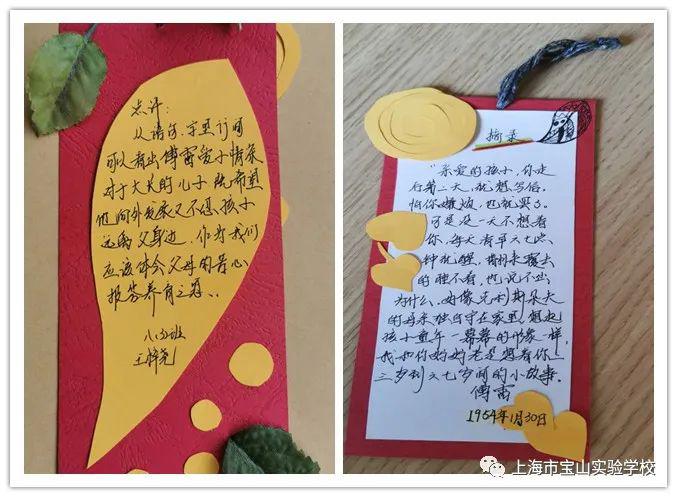 点评:
从语句、字里行间
可以看出傅雷爱子情深
对于大大的儿子 既希望
他向外发展又不忍孩子
远离父身边,作为我们
应该体会父母的苦心
报答养育之恩.
八(3)班
王梓尧
摘录
“亲爱的孩子,你走
后第二天,就想写信,
怕你嫌烦,也就罢了。
可是没一天不想着
你,每天清早六七点
钟就醒,翻来覆去
的睡不着,也说不出
为什么.好像克利斯朵夫
的母亲独自守在家里,想起
孩子童年一幕幕的形象一样,
我和你妈妈老是想着你二
三岁到六七岁间的小故事.
傅雷
1954年1月30日
上海市宝山实验学校